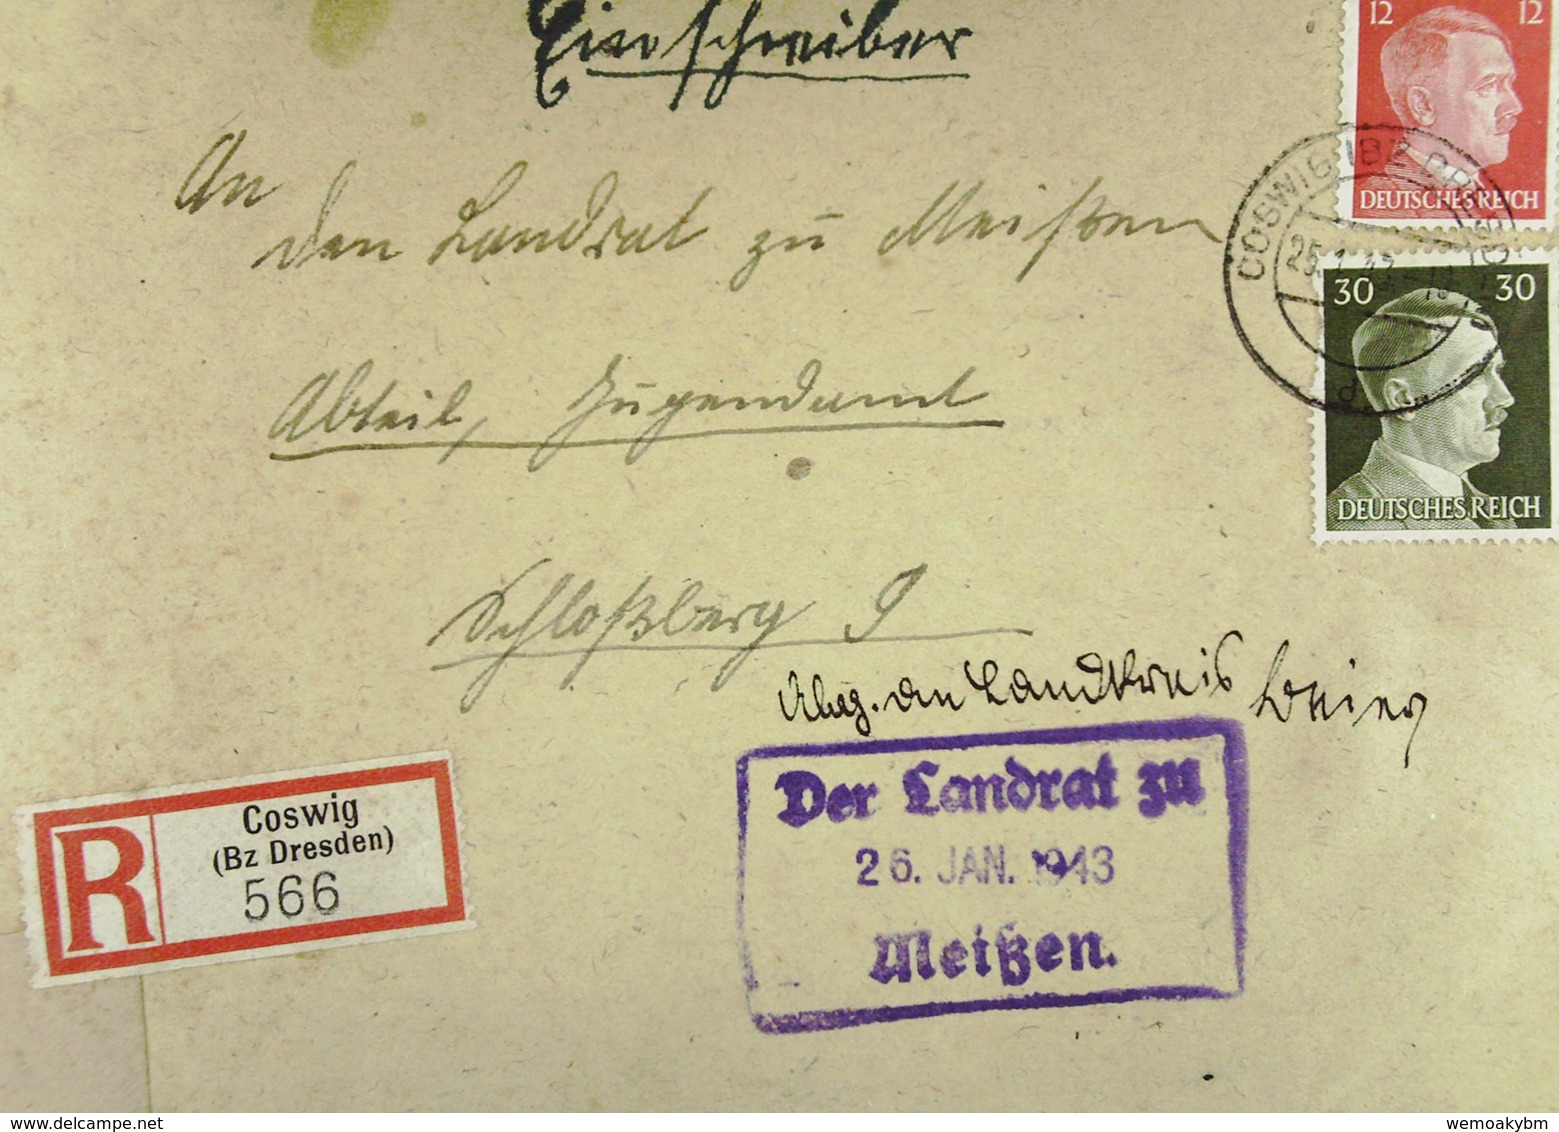 Einschreiben
An
den Landrat zu Meißen
Abteil, Jugendamt
Schloßberg 9
Abg. an Landkreis
12 12
DEUTSCHES REICH
COSWIG (BZ DRESDEN)
25.1.43
d
30 30
DEUTSCHES REICH
R
Coswig
(Bz Dresden)
566
Der Landrat zu
26. JAN. 1943
Meißen.
wemoakybm